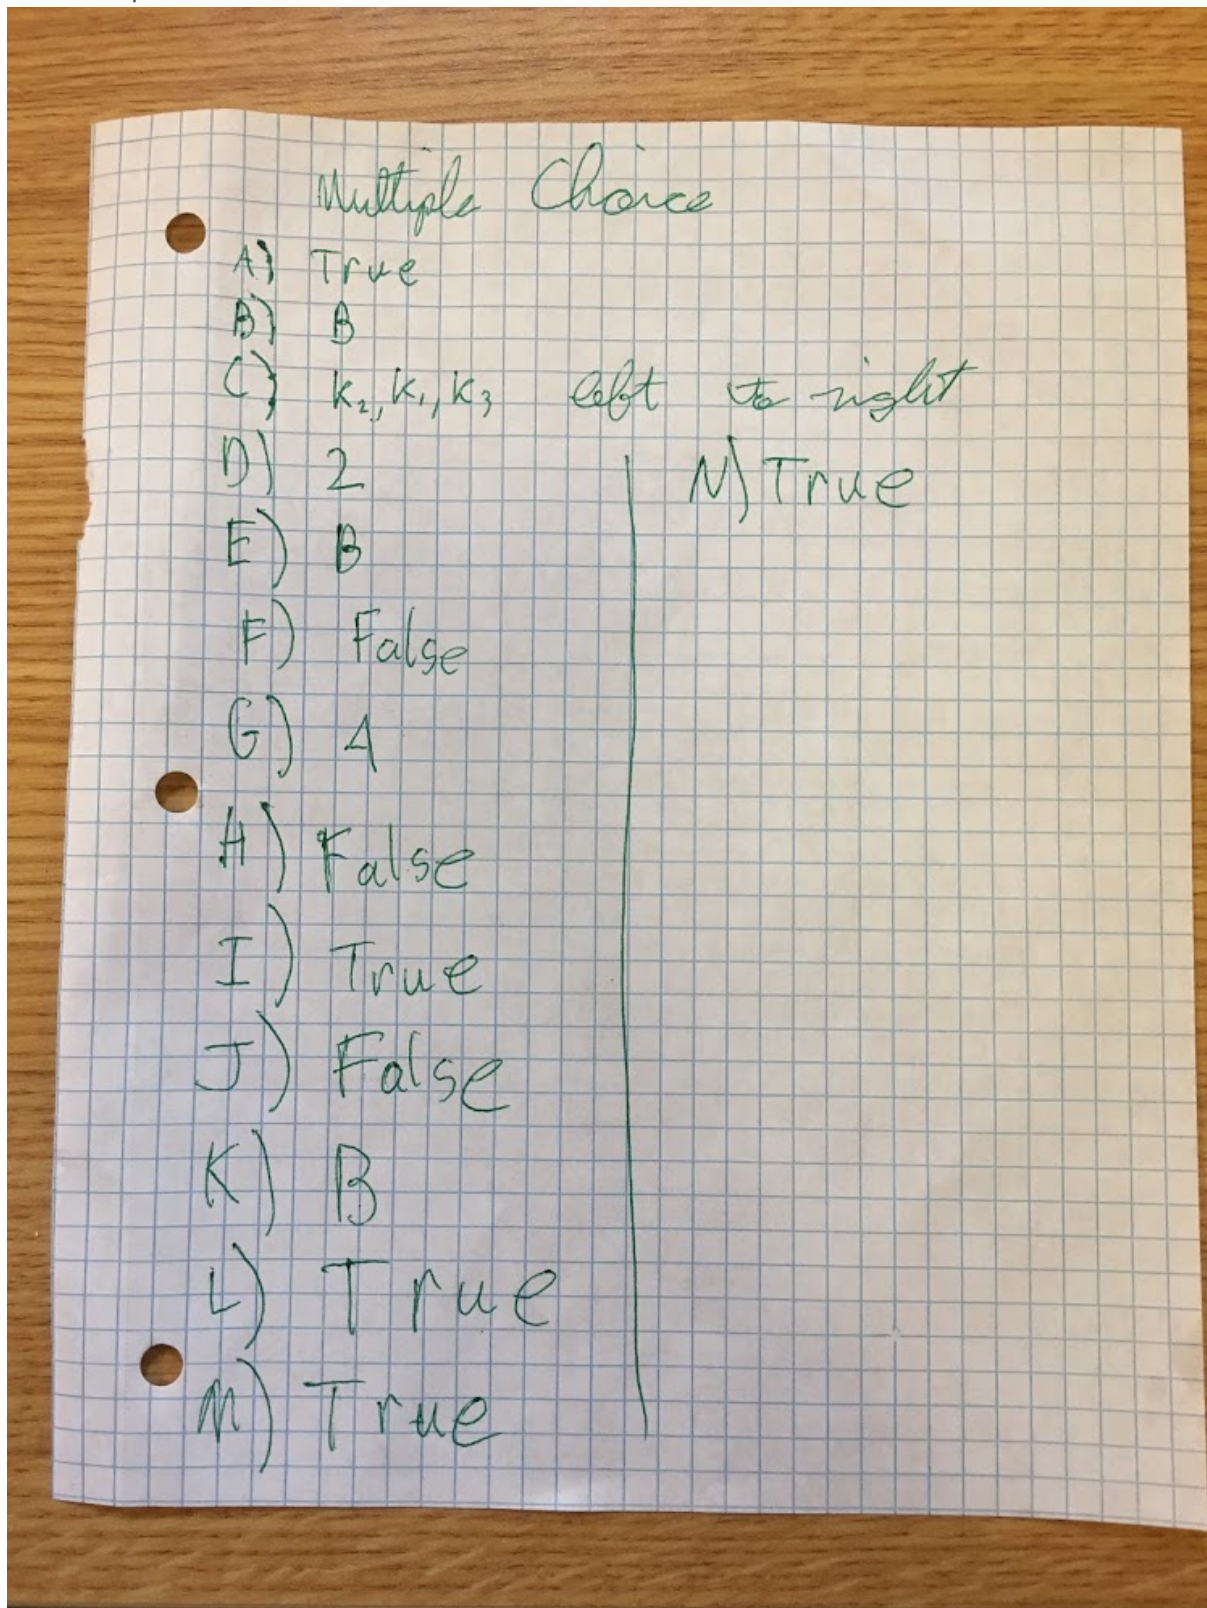 Multiple Choice
A) True
B) B
C) K₂, K₁, K₃ left to right
D) 2
E) B
F) False
G) 4
H) False
I) True
J) False
K) B
L) True
M) True
N) True